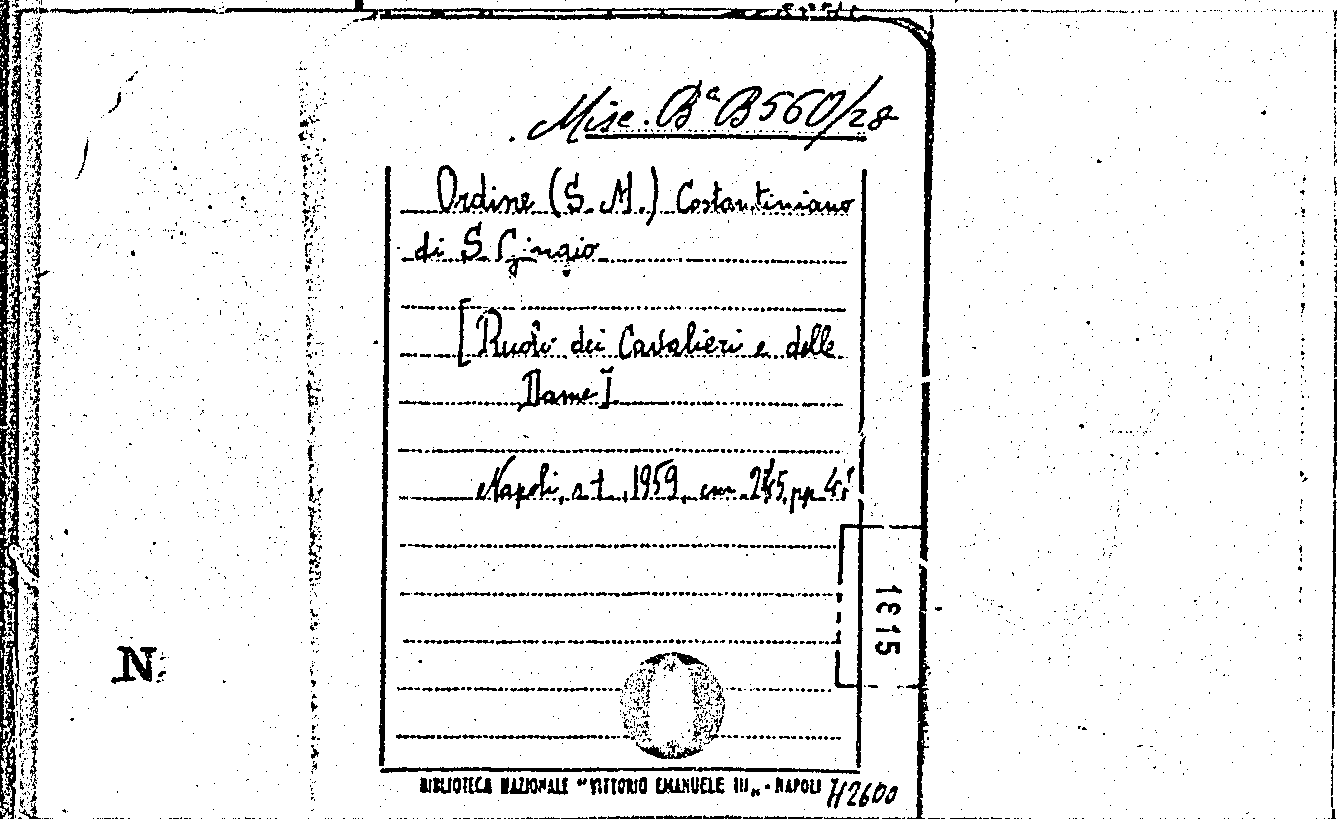 Misc. Bª B560/28
Ordine (S. M.) Costantiniano
di S. Giorgio
[Ruolo dei Cavalieri e delle
Dame].
Napoli, s. t., 1959, cm. 24,5, pp. 
1815
N.
BIBLIOTECA NAZIONALE "VITTORIO EMANUELE III„ - NAPOLI
H2600